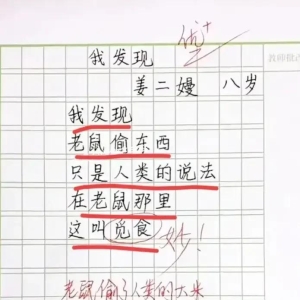 我发现
优+
姜二嫚 八岁
我发现
老鼠偷东西
只是人类的说法
在老鼠那里
这叫觅食
妙!
老鼠偷了人类的大米